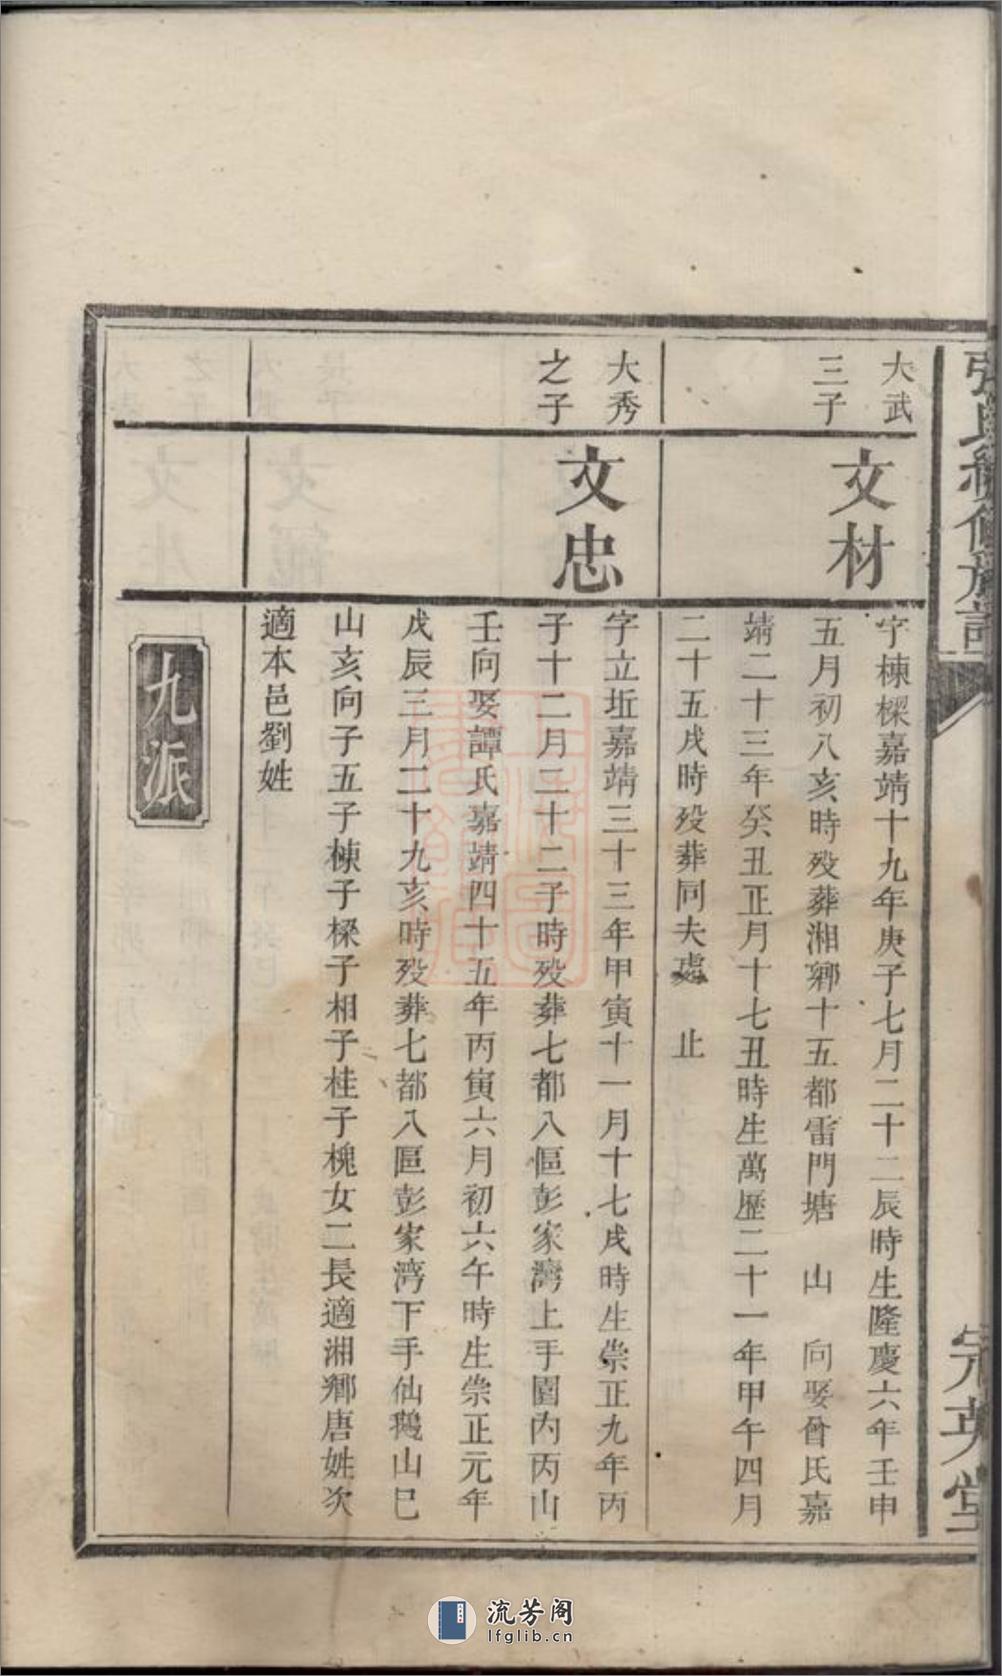 張氏續修族譜
宗英堂
大武
三子
文材
字棟樑嘉靖十九年庚子七月二十二辰時生隆慶六年壬申
五月初八亥時殁葬湘鄉十五都雷門塘　山　向娶曾氏嘉
靖二十三年癸丑正月十七丑時生萬歷二十一年甲午四月
二十五戌時殁葬同夫處　止
大秀
之子
文忠
字立坵嘉靖三十三年甲寅十一月十七戌時生崇正九年丙
子十二月三十二子時殁葬七都八區彭家灣上手園內丙山
壬向娶譚氏嘉靖四十五年丙寅六月初六午時生崇正元年
戊辰三月二十九亥時殁葬七都八區彭家湾下手仙鵝山巳
山亥向子五子棟子樑子相子桂子槐女二長適湘鄉唐姓次
適本邑劉姓
九派
流芳阁
lfglib.cn